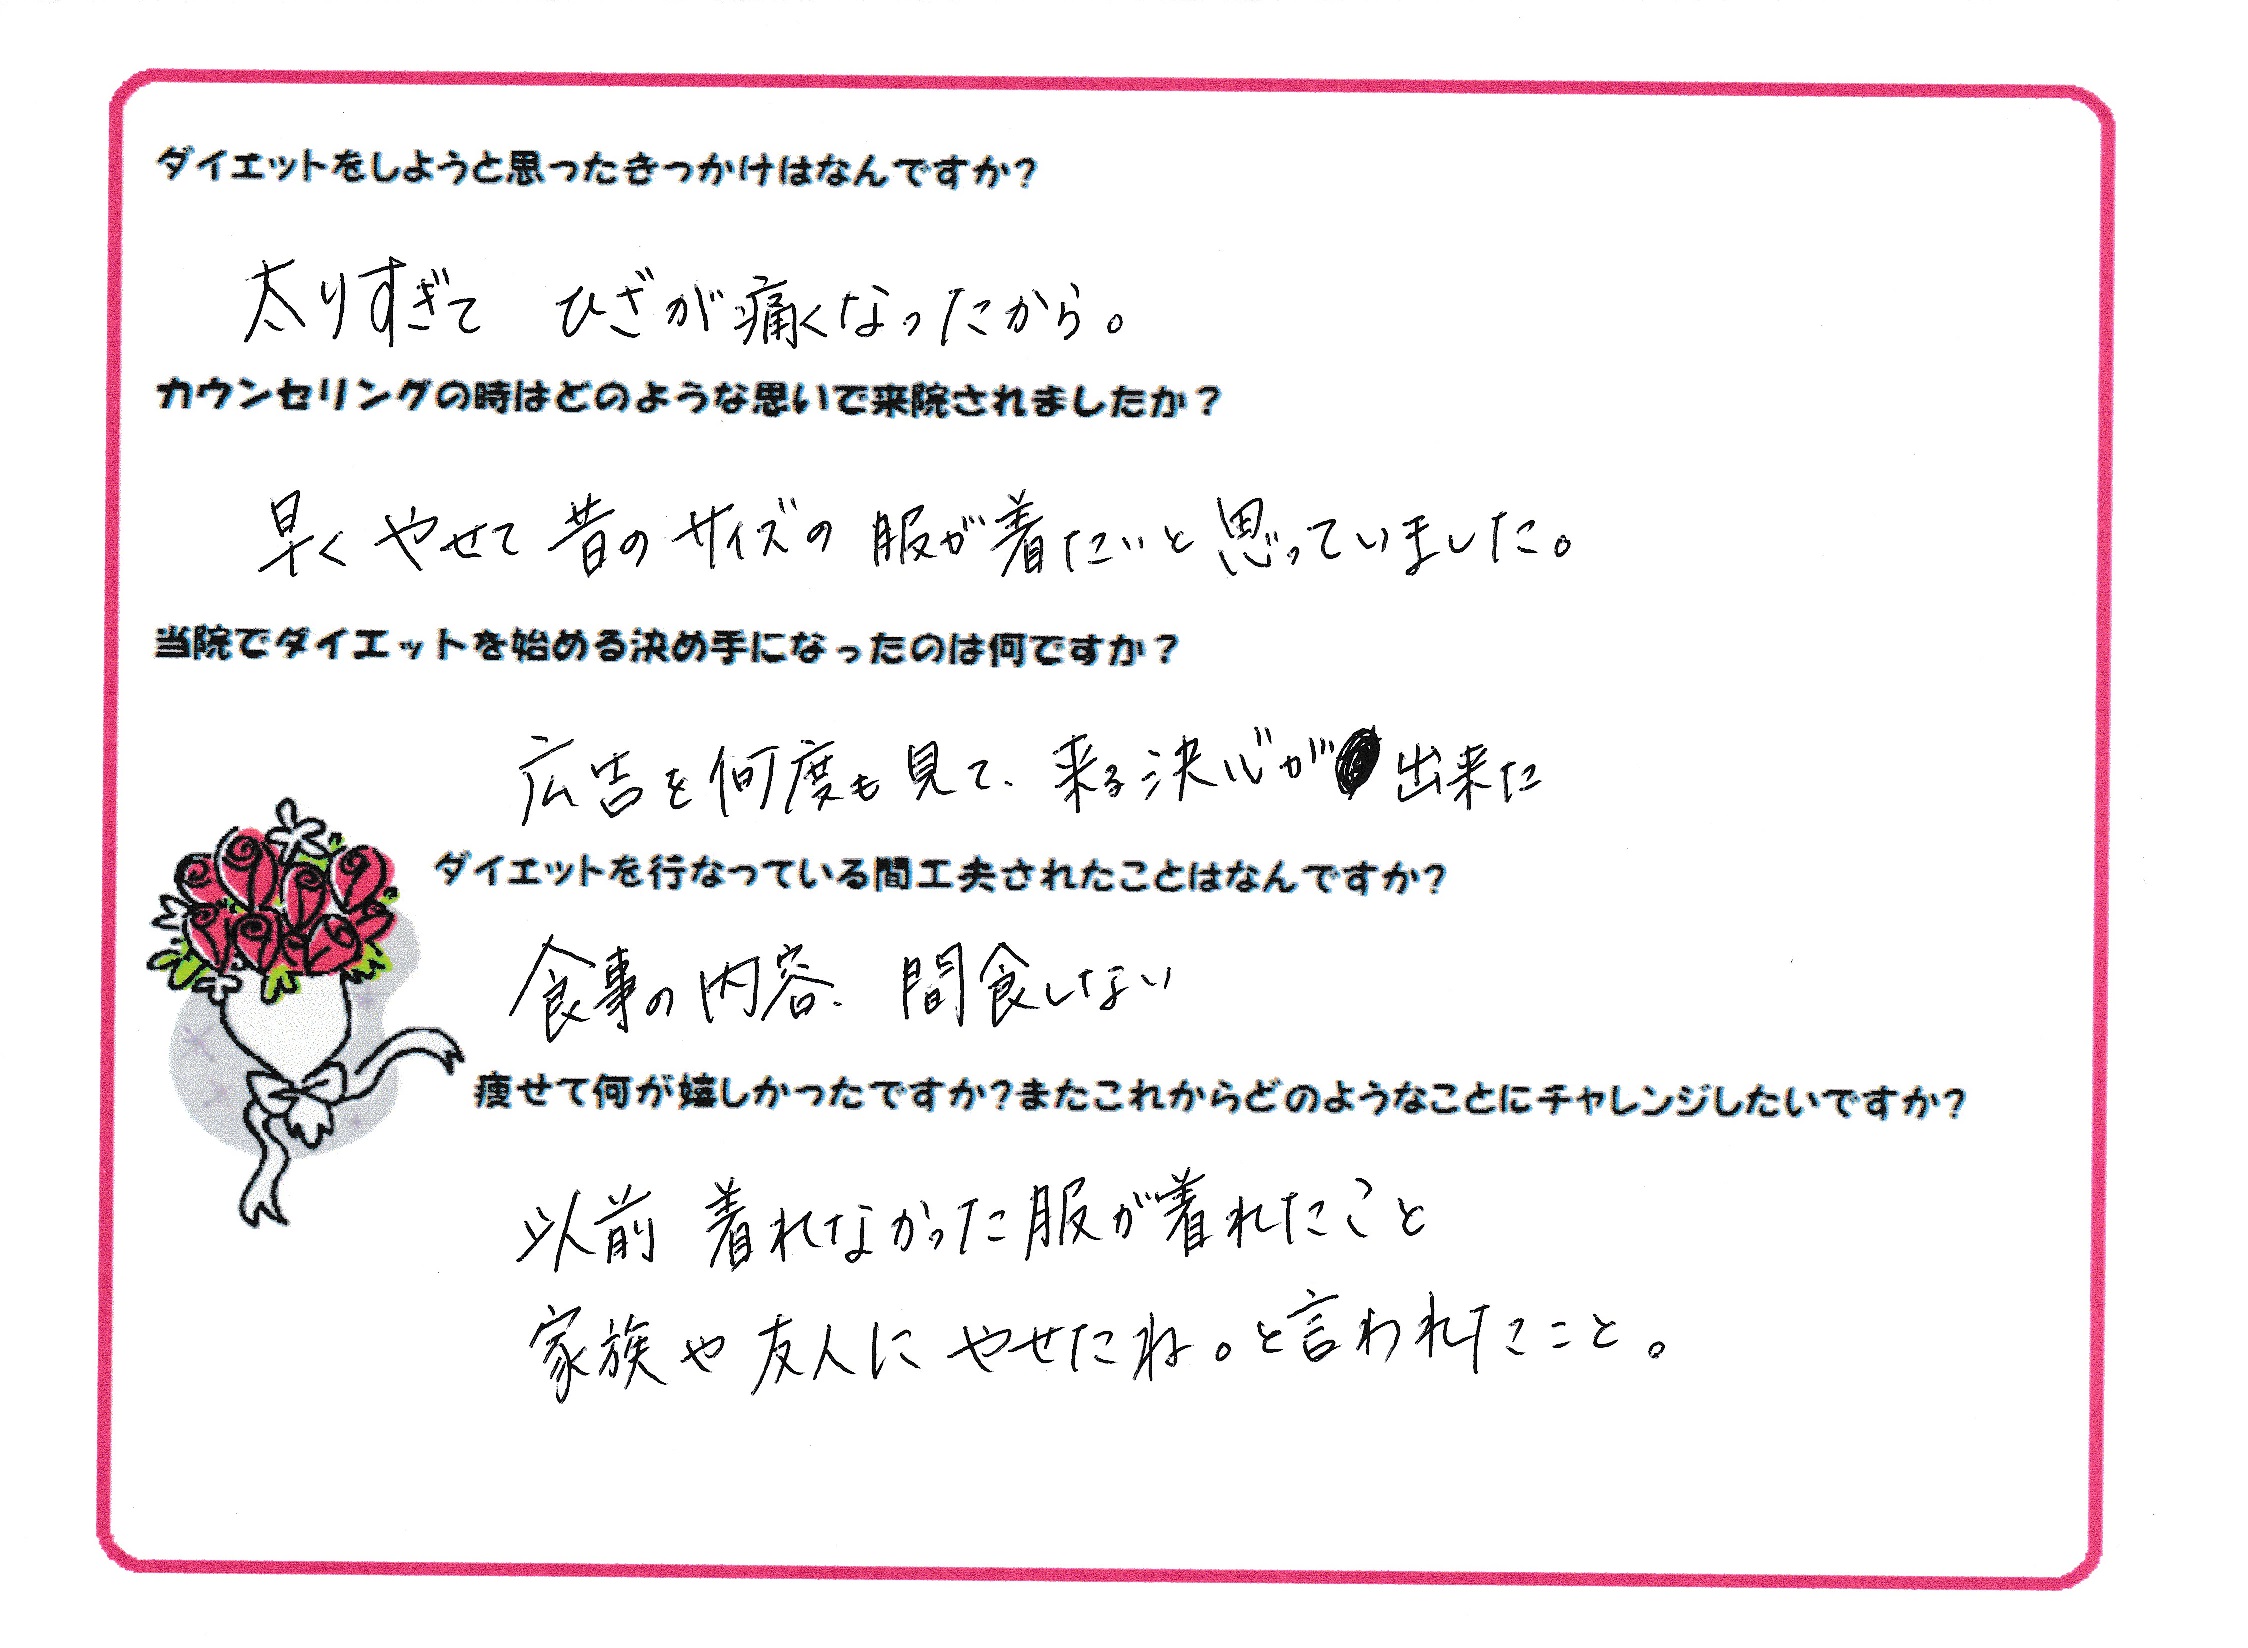 ダイエットをしようと思ったきっかけはなんですか?
太りすぎて ひざが痛くなったから。
カウンセリングの時はどのような思いで来院されましたか？
早くやせて昔のサイズの服が着たいと思っていました。
当院でダイエットを始める決め手になったのは何ですか？
広告を何度も見て、来る決心が出来た
ダイエットを行なっている間工夫されたことはなんですか?
食事の内容、間食しない
痩せて何が嬉しかったですか?またこれからどのようなことにチャレンジしたいですか?
以前 着れなかった服が着れたこと
家族や友人に やせたね。と言われたこと。